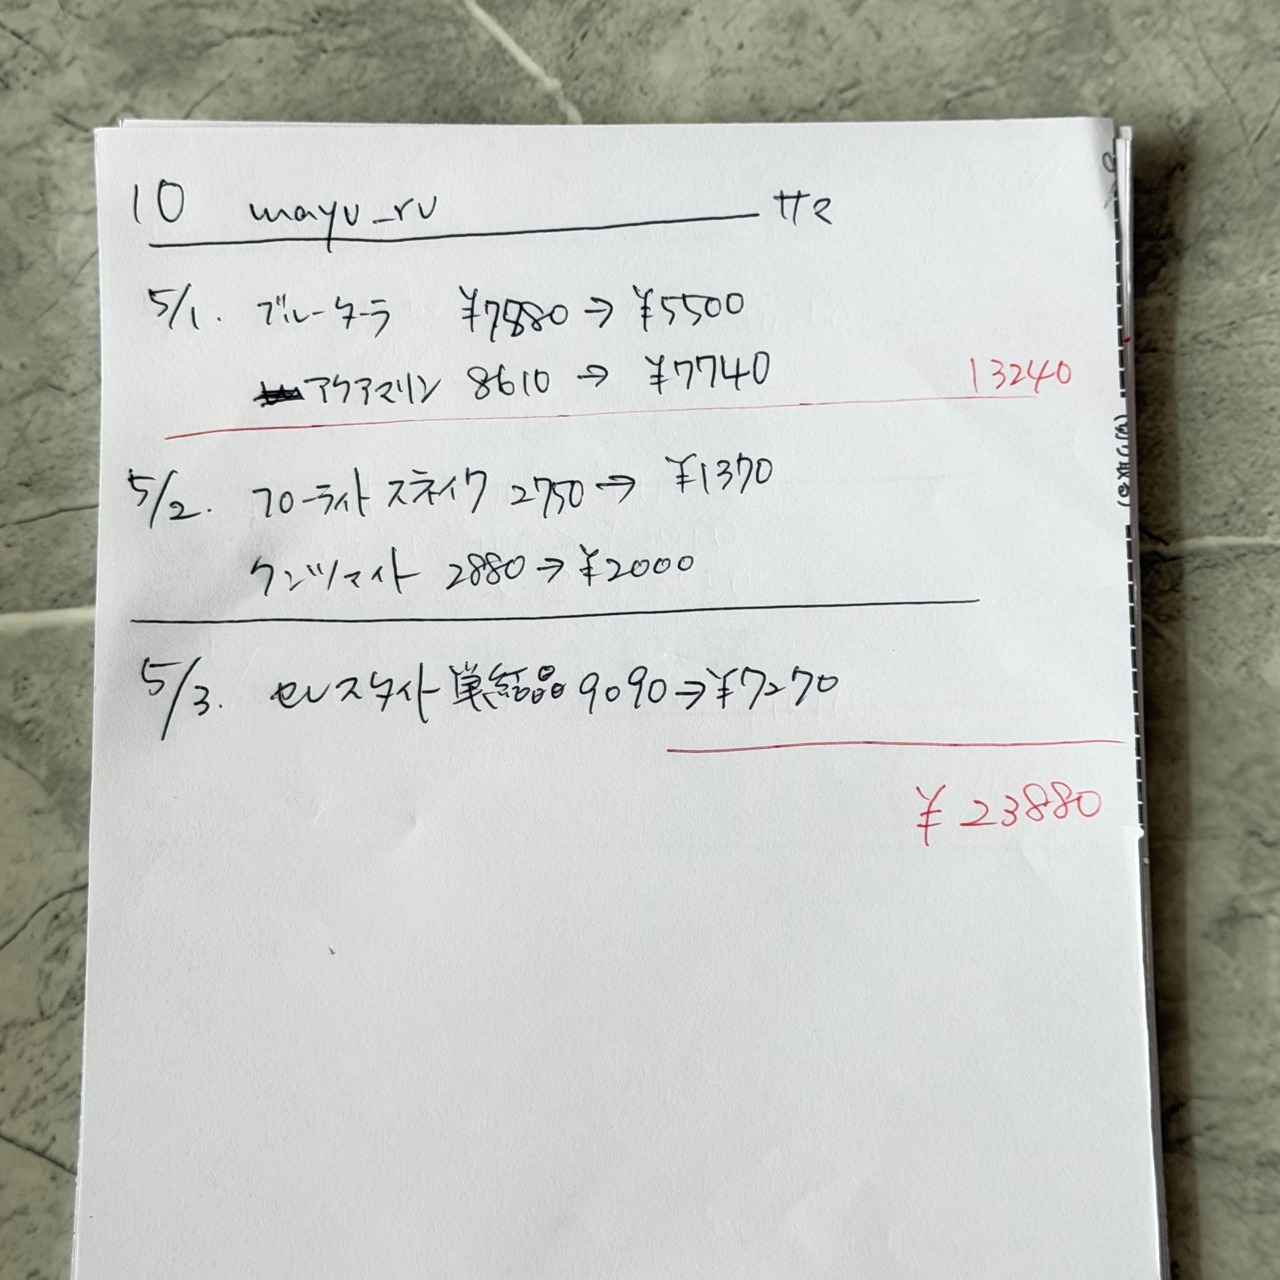 10 mayu_ru サマ
5/1. ブルータラ ¥7880→¥5500
アクアマリン 8610→¥7740 13240
5/2. フローライトスネイク 2750→¥1370
クンツァイト 2880→¥2000
5/3. セレスタイト単結晶 9090→¥7270
¥23880